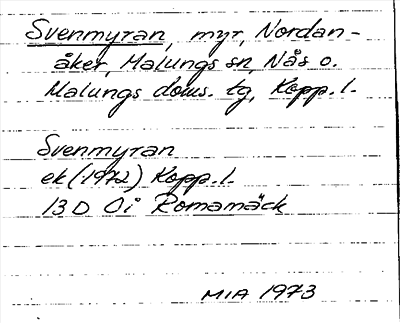 Svenmyran, myr, Nordan-
åker, Malungs sn, Nås o.
Malungs doms. tg, Kopp. l.
Svenmyran
ek (1972) Kopp. l.
13D 0i Romamäck
MIA 1973